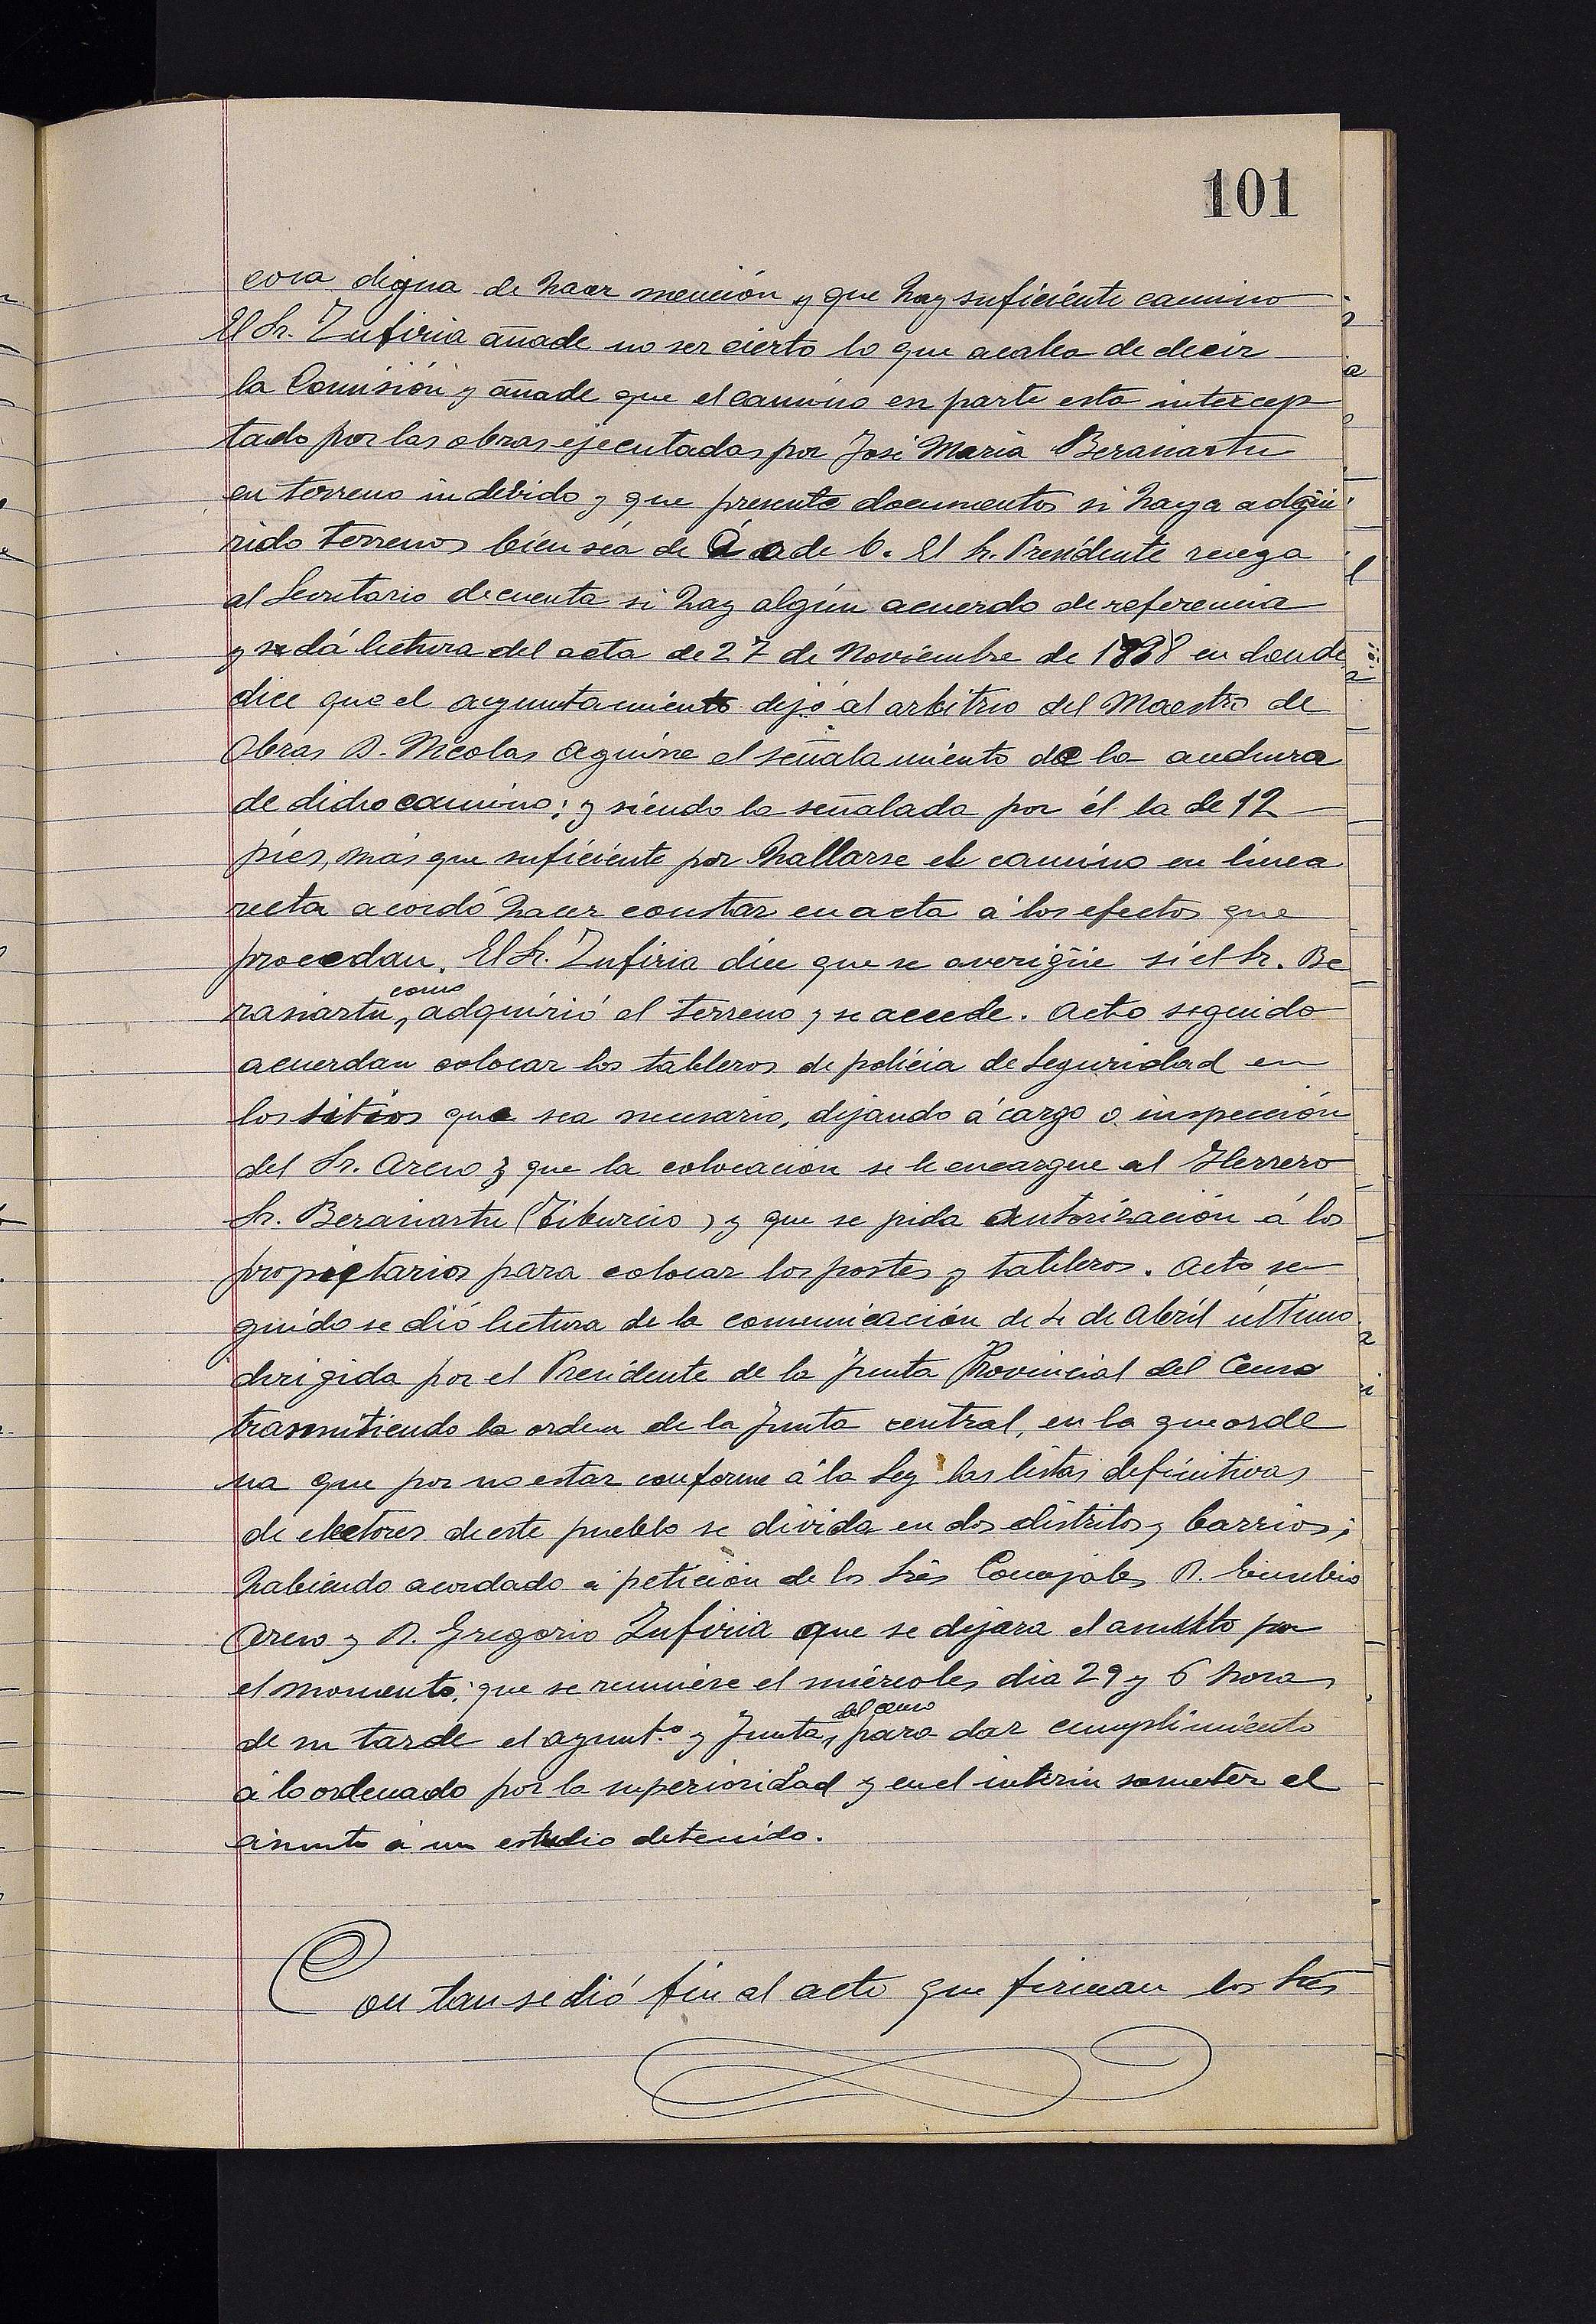 101
cosa digna de hacer mención y que hay suficiente camino
El Sr. Zufiria añade no ser cierto lo que acaba de decir
la Comisión y añade que el camino en parte esta intercep
tado por las obras ejecutadas por José Maria Berasiartu
en terreno indebido y que presente documentos si haya adqui
rido terrenos bien séa de A o de B. El Sr. Presidente ruega
al Secretario de cuenta si hay algún acuerdo de referencia
y se dá lectura del acta de 27 de Noviembre de 1888 en donde
dice que el ayuntamiento dejó al arbitrio del Maestro de
Obras D. Nicolas Aguirre el señalamiento de la anchura
de dicho camino; y siendo la señalada por él la de 12
pies, más que suficiente por hallarse el camino en linea
recta acordó hacer constar en acta á los efectos que
procedan. El Sr. Zufiria dice que se averigüe si el Sr. Be
rasiartu, como adquirió el terreno y se accede. Acto seguido
acuerdan colocar los tableros de policia de Seguridad en
los sitios que sea necesario, dejando á cargo o inspección
del Sr. Areso y que la colocacion se le encargue al Herrero
Sr. Berasiartu (Tiburcio) y que se pida autorización á los
propietarios para colocar los postes y tableros. Acto se
guido se dió lectura de la comunicación de 4 de Abril último
dirigida por el Presidente de la Junta Provincial del Censo
trasmitiendo la orden de la Junta central, en la que orde
na que por no estar conforme á la Ley las listas definitivas
de electores de este pueblo se divida en dos distritos y barrios;
habiendo acordado a petición de los Srés Concejales D. Eusebio
Areso y D. Gregorio Zufiria que se dejara el asunto por
el momento; que se reuniese el miércoles dia 29 y 6 horas
de su tarde el ayunt.º y Junta, del censo para dar cumplimiento
á lo ordenado por la superioridad y en el interin someter el
asunto á un estudio detenido.
Con tan se dió fin al acto que firman los Srés